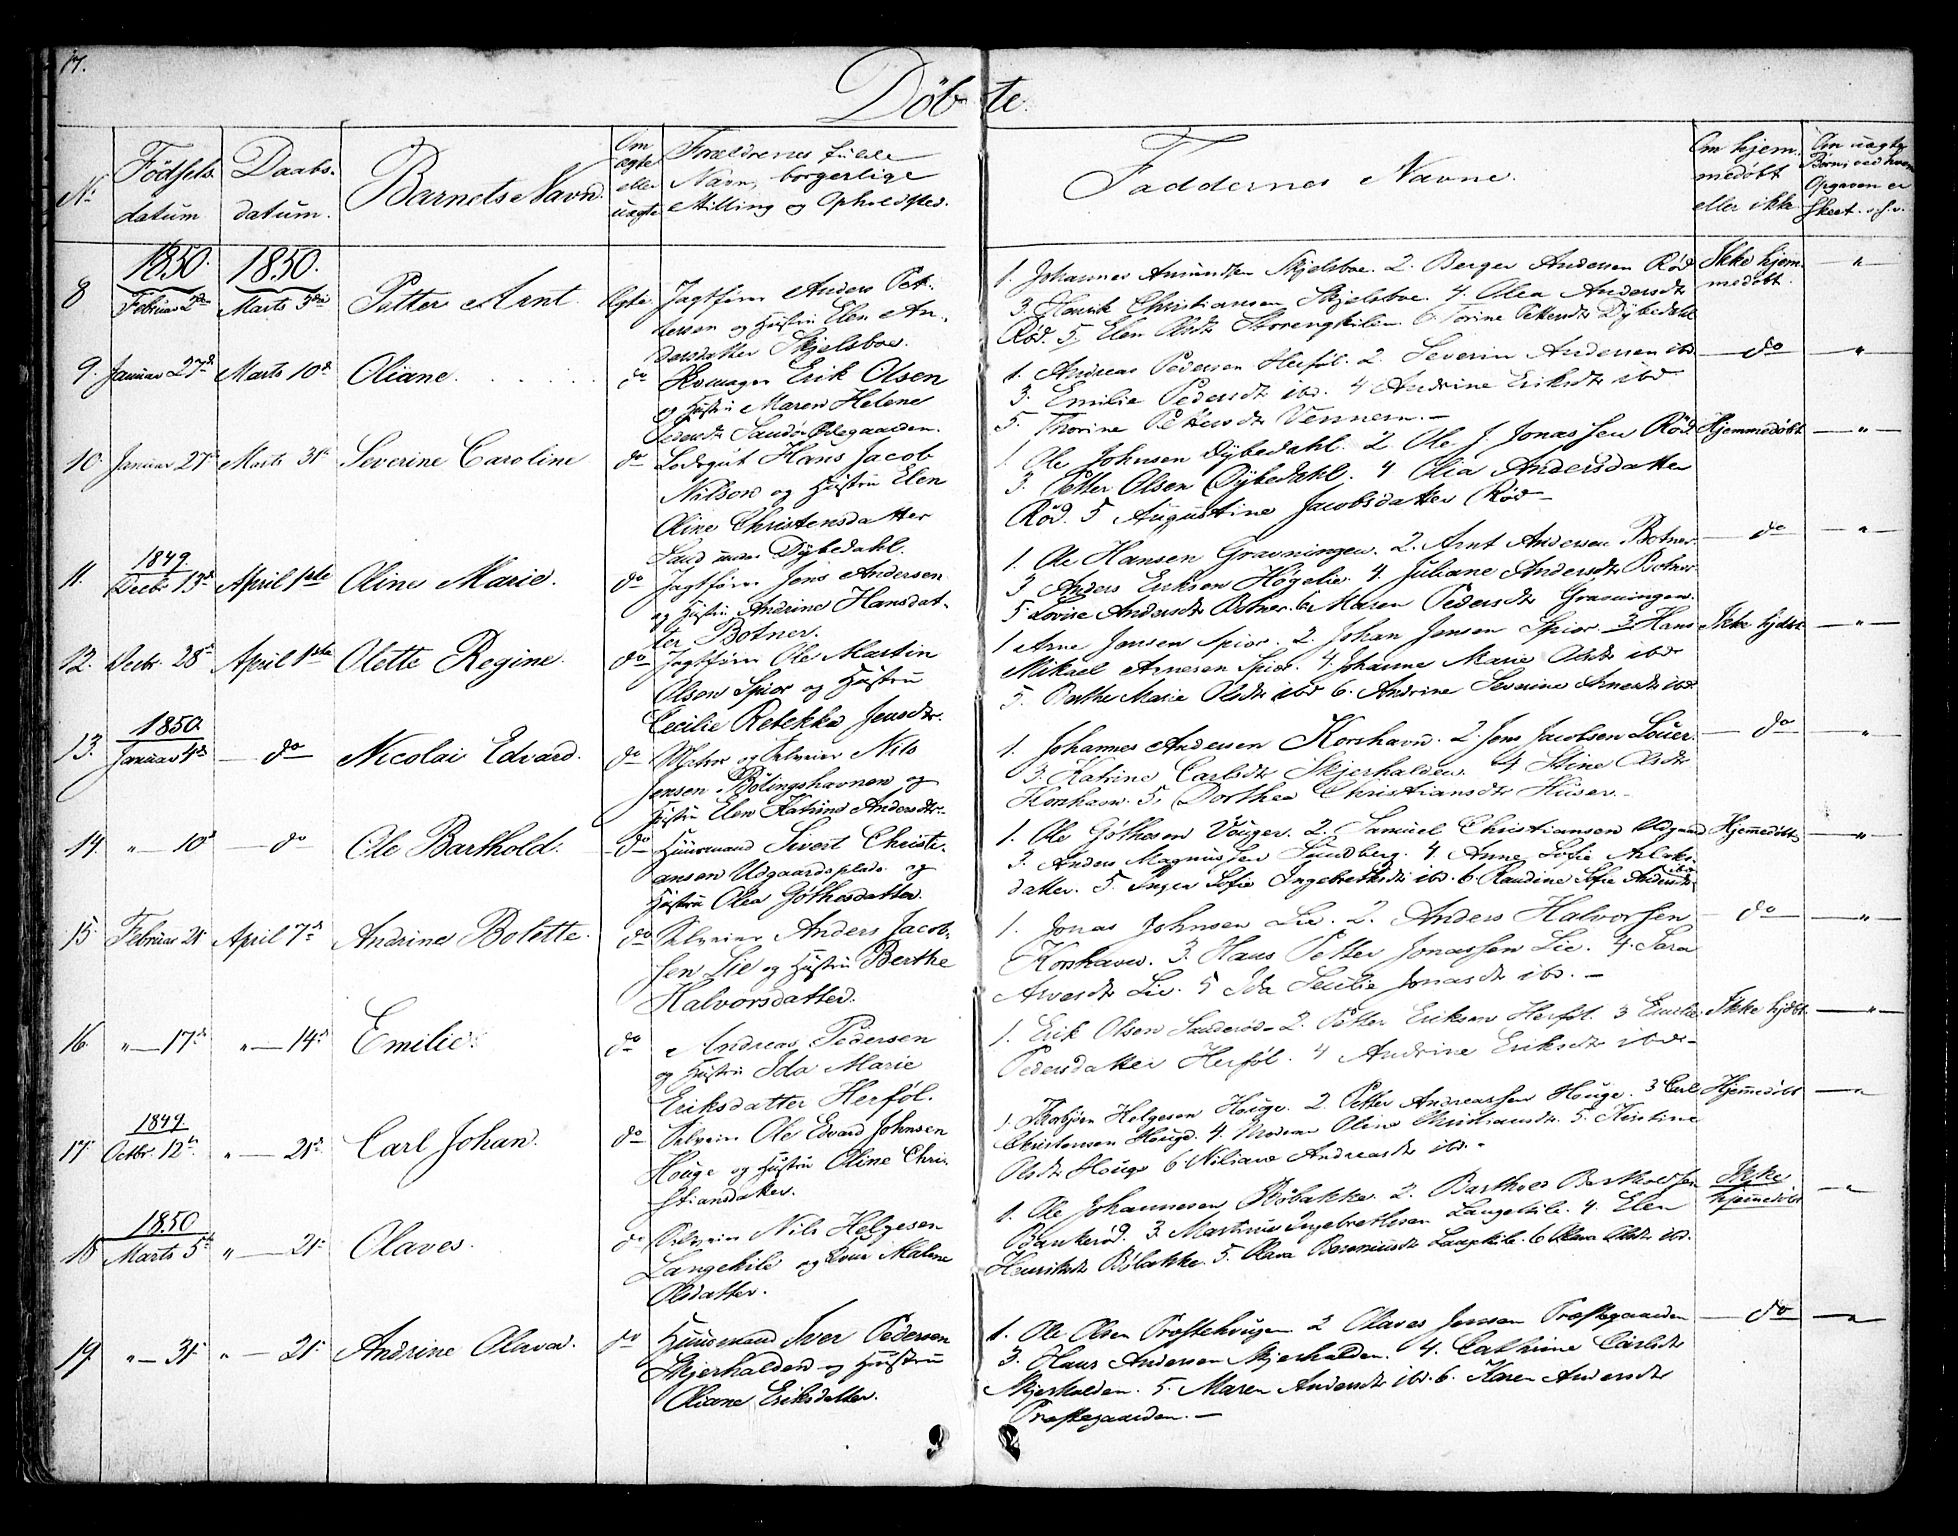 17.
Döbte.
No
Födsels-
datum
Daabs-
datum.
Barnets Navn.
Om
ægte
eller
uægte
Forældrenes fulde
Navn, borgerlige
Stilling og Opholdsted.
Faddernes Navne.
Om hjem-
medöbt
eller ikke
Om uægte
Börn, ved hvem
Opgaven er
skeet. o.s.v.
8
1850.
Februar 2den
1850.
Marts 3die
Petter Arnt.
Ægte.
Jagtförer Anders Pet-
tersen og Hustru Elen An-
dersdatter Skjelsboe.
1. Johannes Asmundsen Skjelsboe. 2. Berger Andersen Röd
3. Henrik Christiansen Skjelsboe. 4. Olea Andersdtr
Röd. 5. Elen Olsdtr Storengkilen. 6 Torine Pettersdtr Dybedahl
Ikke hjem-
medöbt.
"
9.
Januar 27de
Marts 10de
Oliane.
do
Huusmand Erik Olsen
og Hustru Maren Helene
Pedersdtr Sandö Ödegaarden.
1. Andreas Pedersen Herföl. 2. Severin Andersen ibd
3. Emilie Pedersdtr ibd. 4 Andrine Eriksdtr ibd
5. Thorine Pettersdtr Vennern.
do
"
10.
Januar 27de
Marts 31te
Severine Caroline
do
Lodsgut Hans Jacob
Nilsen og Hustru Elen
Oline Christensdatter
Sand under Dybedahl.
1. Ole Johnsen Dybedahl. 2 Ole J. Jonassen Röd.
3. Petter Olsen Dybedahl. 4 Olia Andersdatter
Röd. 5 Augustine Jacobsdatter Röd
Hjemmedöbt
"
11.
1849
Decbr 13de
April 1ste
Oline Marie.
do
Jagtförer Jens Andersen
og Hustru Andrine Hansdat-
ter Botner.
1. Ole Hansen Gravningen. 2. Arnt Andersen Botner
3 Anders Eriksen Högelie. 4. Juliane Andersdtr Botner
5 Lovise Andersdtr Botner. 6. Maren Pedersdtr Gravningen.
do
"
12.
Decbr. 28de
April 1ste
Olette Regine.
do
Jagtförer Ole Martin
Olsen Spior og Hustru
Cecilie Rebekka Jensdtr.
1 Arne Jensen Spior. 2. Johan Jensen Spior. 3. Hans
Mikael Arnesen Spior. 4. Johanne Marie Olsdtr ibd
5. Berthe Marie Olsdtr ibd 6. Andrine Severine Arnesdtr ibd.
Ikke hjdbt
"
13.
1850.
Januar 4de
do
Nicolai Edvard.
do
og Selveier Nils
Jensen Bölingshavnen og
Hustru Elen Katrine Andersdtr.
1. Johannes Andersen Korshavn. 2. Jens Jacobsen Löuer.
3. Katrine Carlsdtr Skjerhalden. 4 Stine Olsdtr
Korshavn. 5. Dorthea Christiansdtr Huser.
do
"
14.
" 10de
do
Ole Barthold.
do
Huusmand Sivert Christi-
ansen Udgaardsplads og
Hustru Olea Göthesdatter.
1. Ole Göthesen Vouger. 2. Samuel Christiansen Udgaard
3. Anders Magnussen Sundberg. 4. Anne Sofie Aslaks-
datter. 5. Inger Sofie Ingebrethsdtr ibd. 6. Randine Sofie Andersdtr
ibd
Hjemmedöbt
"
15
Februar 21
April 7de
Andrine Bolette.
do
Selveier Anders Jacob-
sen Lie og Hustru Berthe
Halvorsdatter.
1. Jonas Johnsen Lie. 2. Anders Halvorsen
Korshavn. 3. Hans Petter Jonassen Lie. 4. Sara
Arvesdtr Lie. 5 Ida Secilie Jonasdtr ibd.
do
"
16
" 17de
" 14de
Emilie.
do
Andreas Pedersen
og Hustru Ida Marie
Eriksdatter Herföl.
1. Erik Olsen Sanderöd 2. Petter Eriksen Herföl. 3 Emilie
Pedersdatter Herföl. 4 Andrine Eriksdtr ibd.
Ikke hjdbt.
"
17.
1849.
Octbr. 12te
" 21de
Carl Johan.
do
Selveier Ole Edvard Johnsen
Houge og Hustru Oline Chri-
stiansdatter.
1. Thorbjörn Helgesen Houge. 2. Petter Andreassen Houge. 3 Carl
Christensen Houge. 4. Moderen Oline Christiansdtr. 5. Kirstine
Olsdtr Houge 6 Niliane Andreasdtr ibd.
Hjemmedöbt
"
18
1850
Marts 5te
" 21
Olaves.
do
Selveier Nils Helgesen
Langekile og Kone Malene
Olsdatter.
1. Ole Johannesen Bölakke. 2. Barthold Bartholdsen
Bankeröd. 3. Martinus Ingebrethsen Langekile. 4. Elen
Henriksdtr Bölakke. 5. Olava Langekile. 6 Olava Olsdtr ibd.
Ikke
hjemmedöbt
"
19.
" 31
" 21
Andrine Olava.
do
Huusmand Iver Pedersen
Skjerhalden og Hustru
Oliane Eriksdatter.
1. Ole Olsen Prestehougen 2 Olaves Jensen Præstegaarden
3. Hans Andersen Skjerhalden. 4. Cathrine Carlsdtr
Skjerhalden. 5. Maren Andersdtr ibd. 6. Karen Andersdtr
Præstegaarden.
do
"